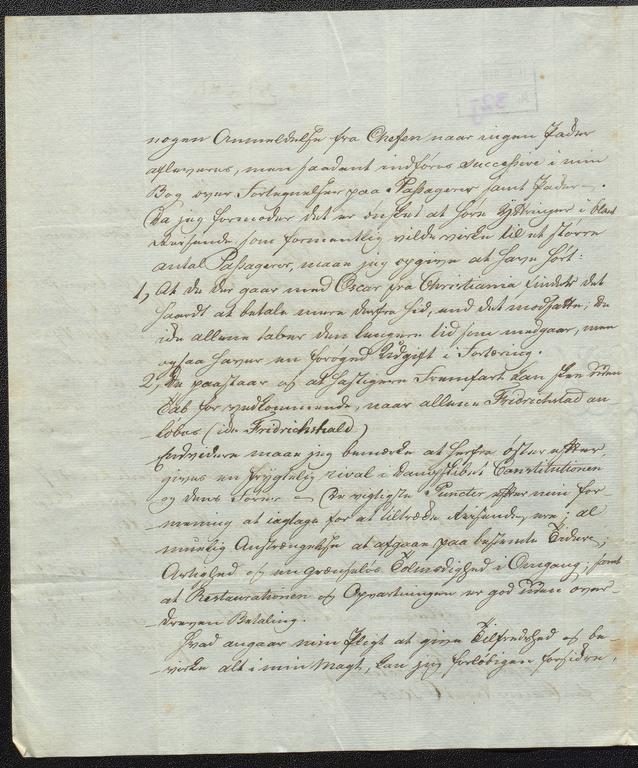 nogen Anmeldelse fra Chefen naar ingen Fader
afleveres, men saadant indføres successive i min
Bog over Fortegnelser paa Passagerer samt Fader.
Da jeg formoder det er ønsket at høre Yttringer i blandt
Reisende, som formentlig vilde virke til et større
antal Passagerer, maae jeg opgive at have hørt:
1, At de der gaar med Oscar fra Christiania finder det
haardt at betale mere derfra hid, end det modsatte; Da
ide allene taber den længere tid som medgaar, men
ogsaa haver en forøged Udgift i Fortæring.
2, De paastaar og at hastigere Fremfart kan skee uden
Tab for vedkommende, naar allene Fridrichstad an-
løbes (ide Fridrichshald)
Endvidere maae jeg bemærke at herfra øster efter
gives en frygtelig rival i Dampskibet Constitutionen
og dens Førere - De vigtigste Puncter, efter min for-
meening at iagtage for at tiltræde Reisende, ere; al
muelig Anstrængelse at afgaae paa bestemte Tider;
Artighed og en grændseløs Tolmodighed i Omgang; samt
at Restaurationen og Opvartningen er god uden over-
dreven Betaling.
Hvad angaar min Pligt at give Tilfredshed og be-
virke alt i min Magt, kan jeg forløbigen forsikre,